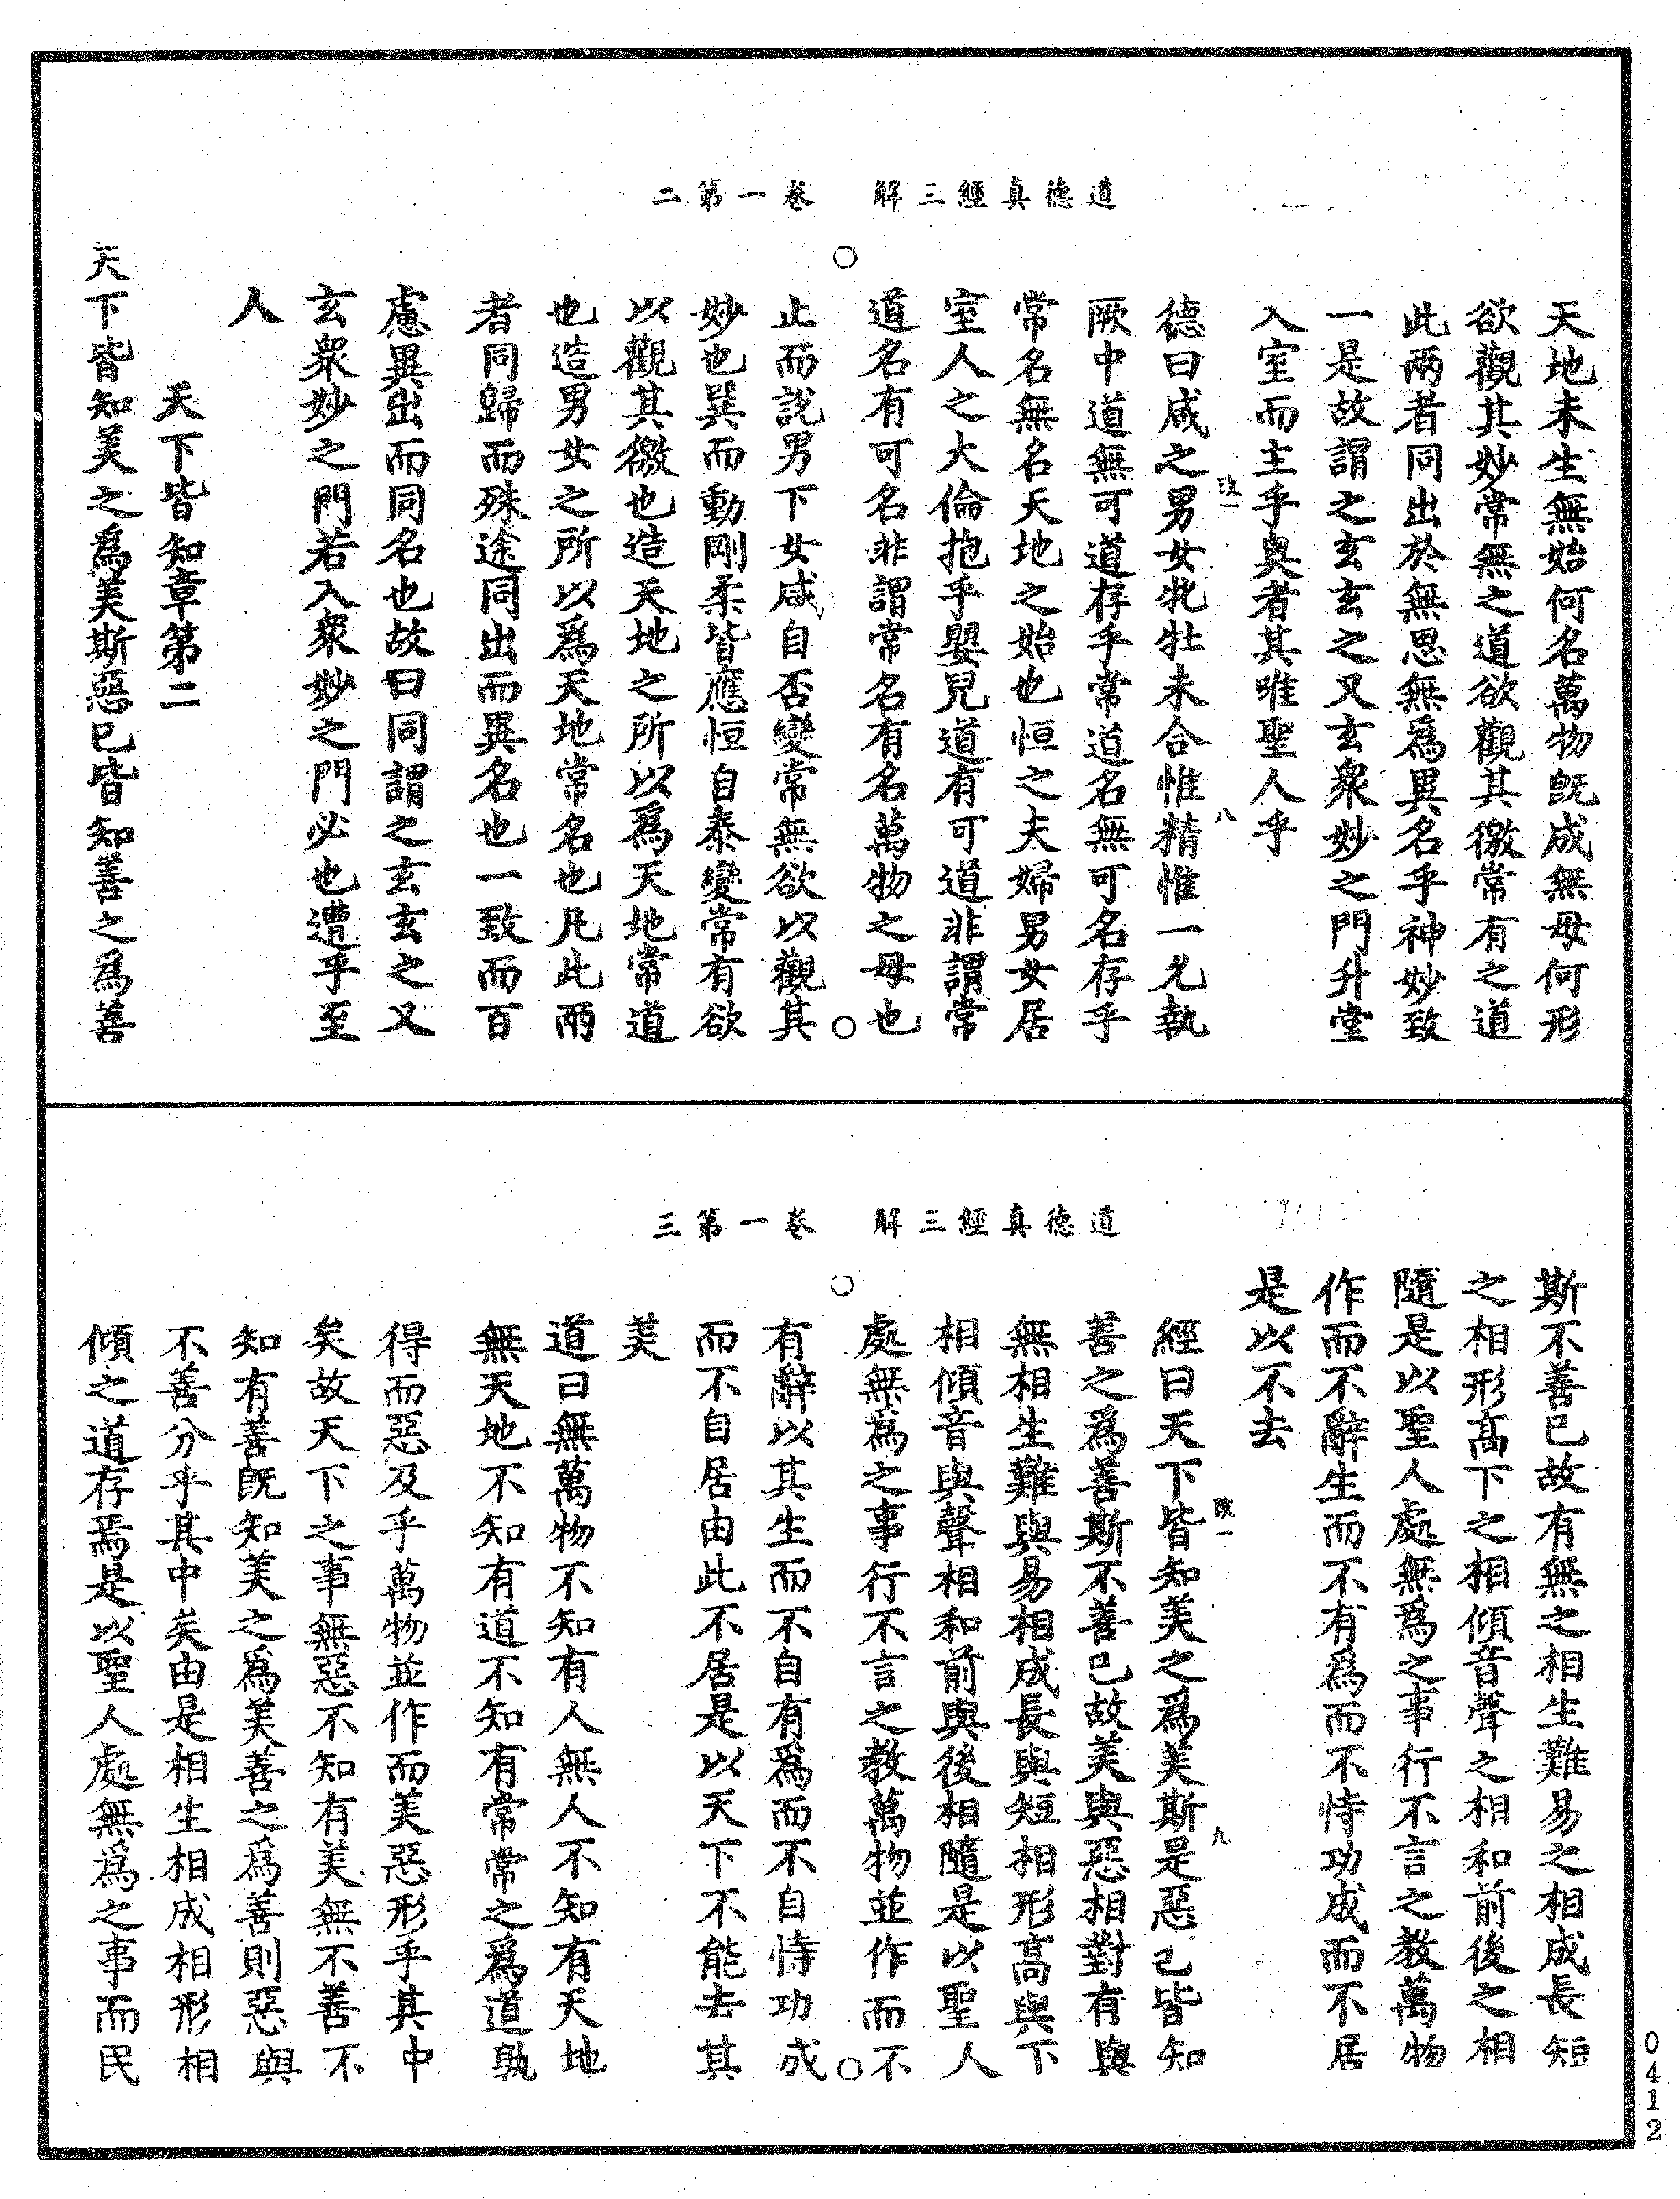 道德真經三解　卷一第二
天地未生無始何名萬物既成無母何形
欲觀其妙常無之道欲觀其徼常有之道
此兩者同出於無思無為異名乎神妙致
一是故謂之玄玄之又玄衆妙之門升堂
入室而主乎奥者其唯聖人乎
改一　八
德曰咸之男女牝牡未合惟精惟一允執
厥中道無可道存乎常道名無可名存乎
常名無名天地之始也恒之夫婦男女居
室人之大倫抱乎嬰兒道有可道非謂常
道名有可名非謂常名有名萬物之母也
止而説男下女咸自否變常無欲以觀其
妙也巽而動剛柔皆應恒自泰變常有欲
以觀其徼也造天地之所以為天地常道
也造男女之所以為天地常名也凡此兩
者同歸而殊途同出而異名也一致而百
慮異出而同名也故曰同謂之玄玄之又
玄衆妙之門若入衆妙之門必也遭乎至
人
天下皆知章第二
天下皆知美之為美斯惡已皆知善之為善
道德真經三解　卷一第三
斯不善已故有無之相生難易之相成長短
之相形高下之相傾音聲之相和前後之相
隨是以聖人處無為之事行不言之教萬物
作而不辭生而不有為而不恃功成而不居
是以不去
改一　九
經曰天下皆知美之為美斯是惡已皆知
善之為善斯不善已故美與惡相對有與
無相生難與易相成長與短相形高與下
相傾音與聲相和前與後相隨是以聖人
處無為之事行不言之教萬物並作而不
有辭以其生而不自有為而不自恃功成
而不自居由此不居是以天下不能去其
美
道曰無萬物不知有人無人不知有天地
無天地不知有道不知有常常之為道孰
得而惡及乎萬物並作而美惡形乎其中
矣故天下之事無惡不知有美無不善不
知有善既知美之為美善之為善則惡與
不善分乎其中矣由是相生相成相形相
傾之道存焉是以聖人處無為之事而民
0412